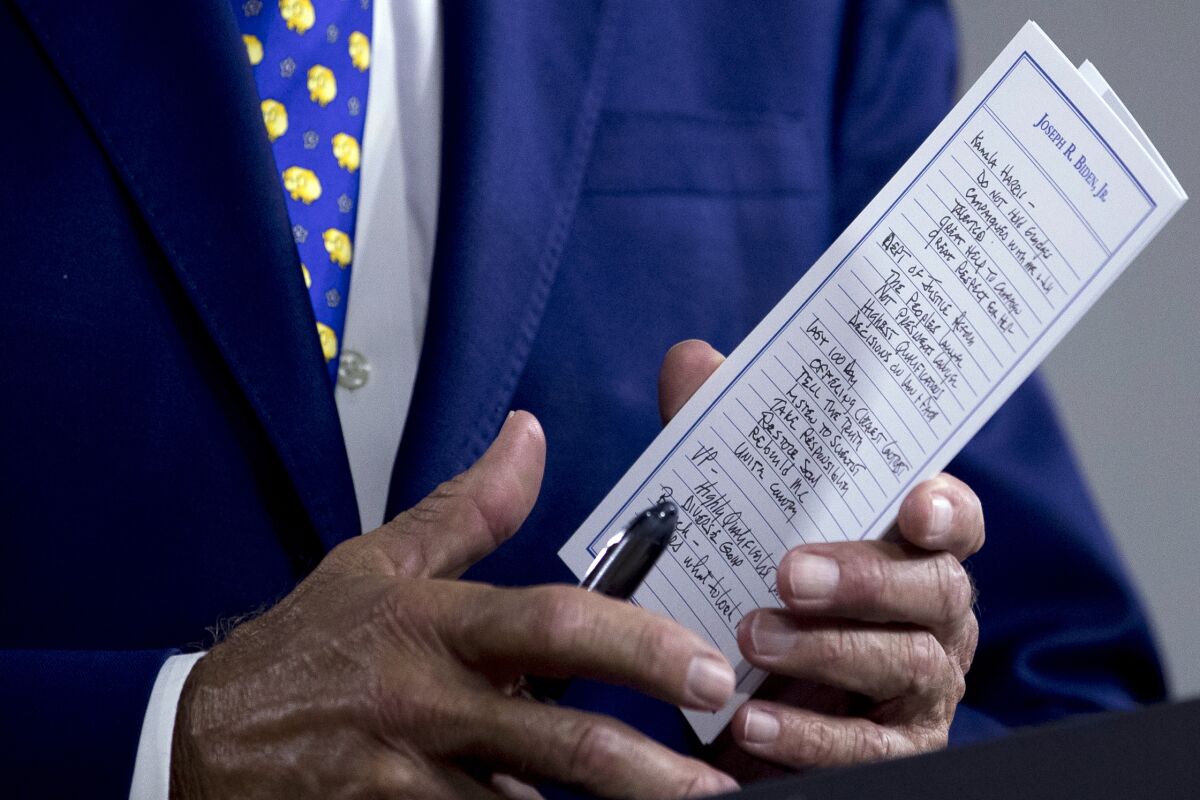 JOSEPH R. BIDEN, JR.
KAMALA HARRIS –
DO NOT HOLD GRUDGES
CAMPAIGNED WITH ME & JILL
TALENTED
GREAT HELP TO CAMPAIGN
GREAT RESPECT FOR HER
DEPT OF JUSTICE REFORM
THE PEOPLES LAWYER
NOT PRESIDENTS LAWYER
HIGHEST QUALIFICATIONS
DECISIONS ON LAW & FACT
LAST 100 DAY
OFFERING CLEAREST CONTRAST
TELL THE TRUTH
LISTEN TO SCIENTIST
TAKE RESPONSIBILITY
RESTORE SOUL
REBUILD M.C
UNITE COUNTRY
VP – HIGHLY QUALIFIED
DIVERSE GROUP
what to look